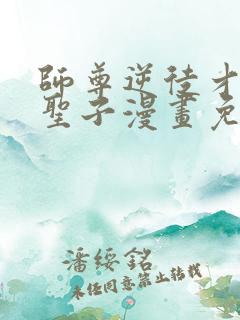 師尊逆徒才
聖子漫畫免
潘綏銘
未经同意禁止转载